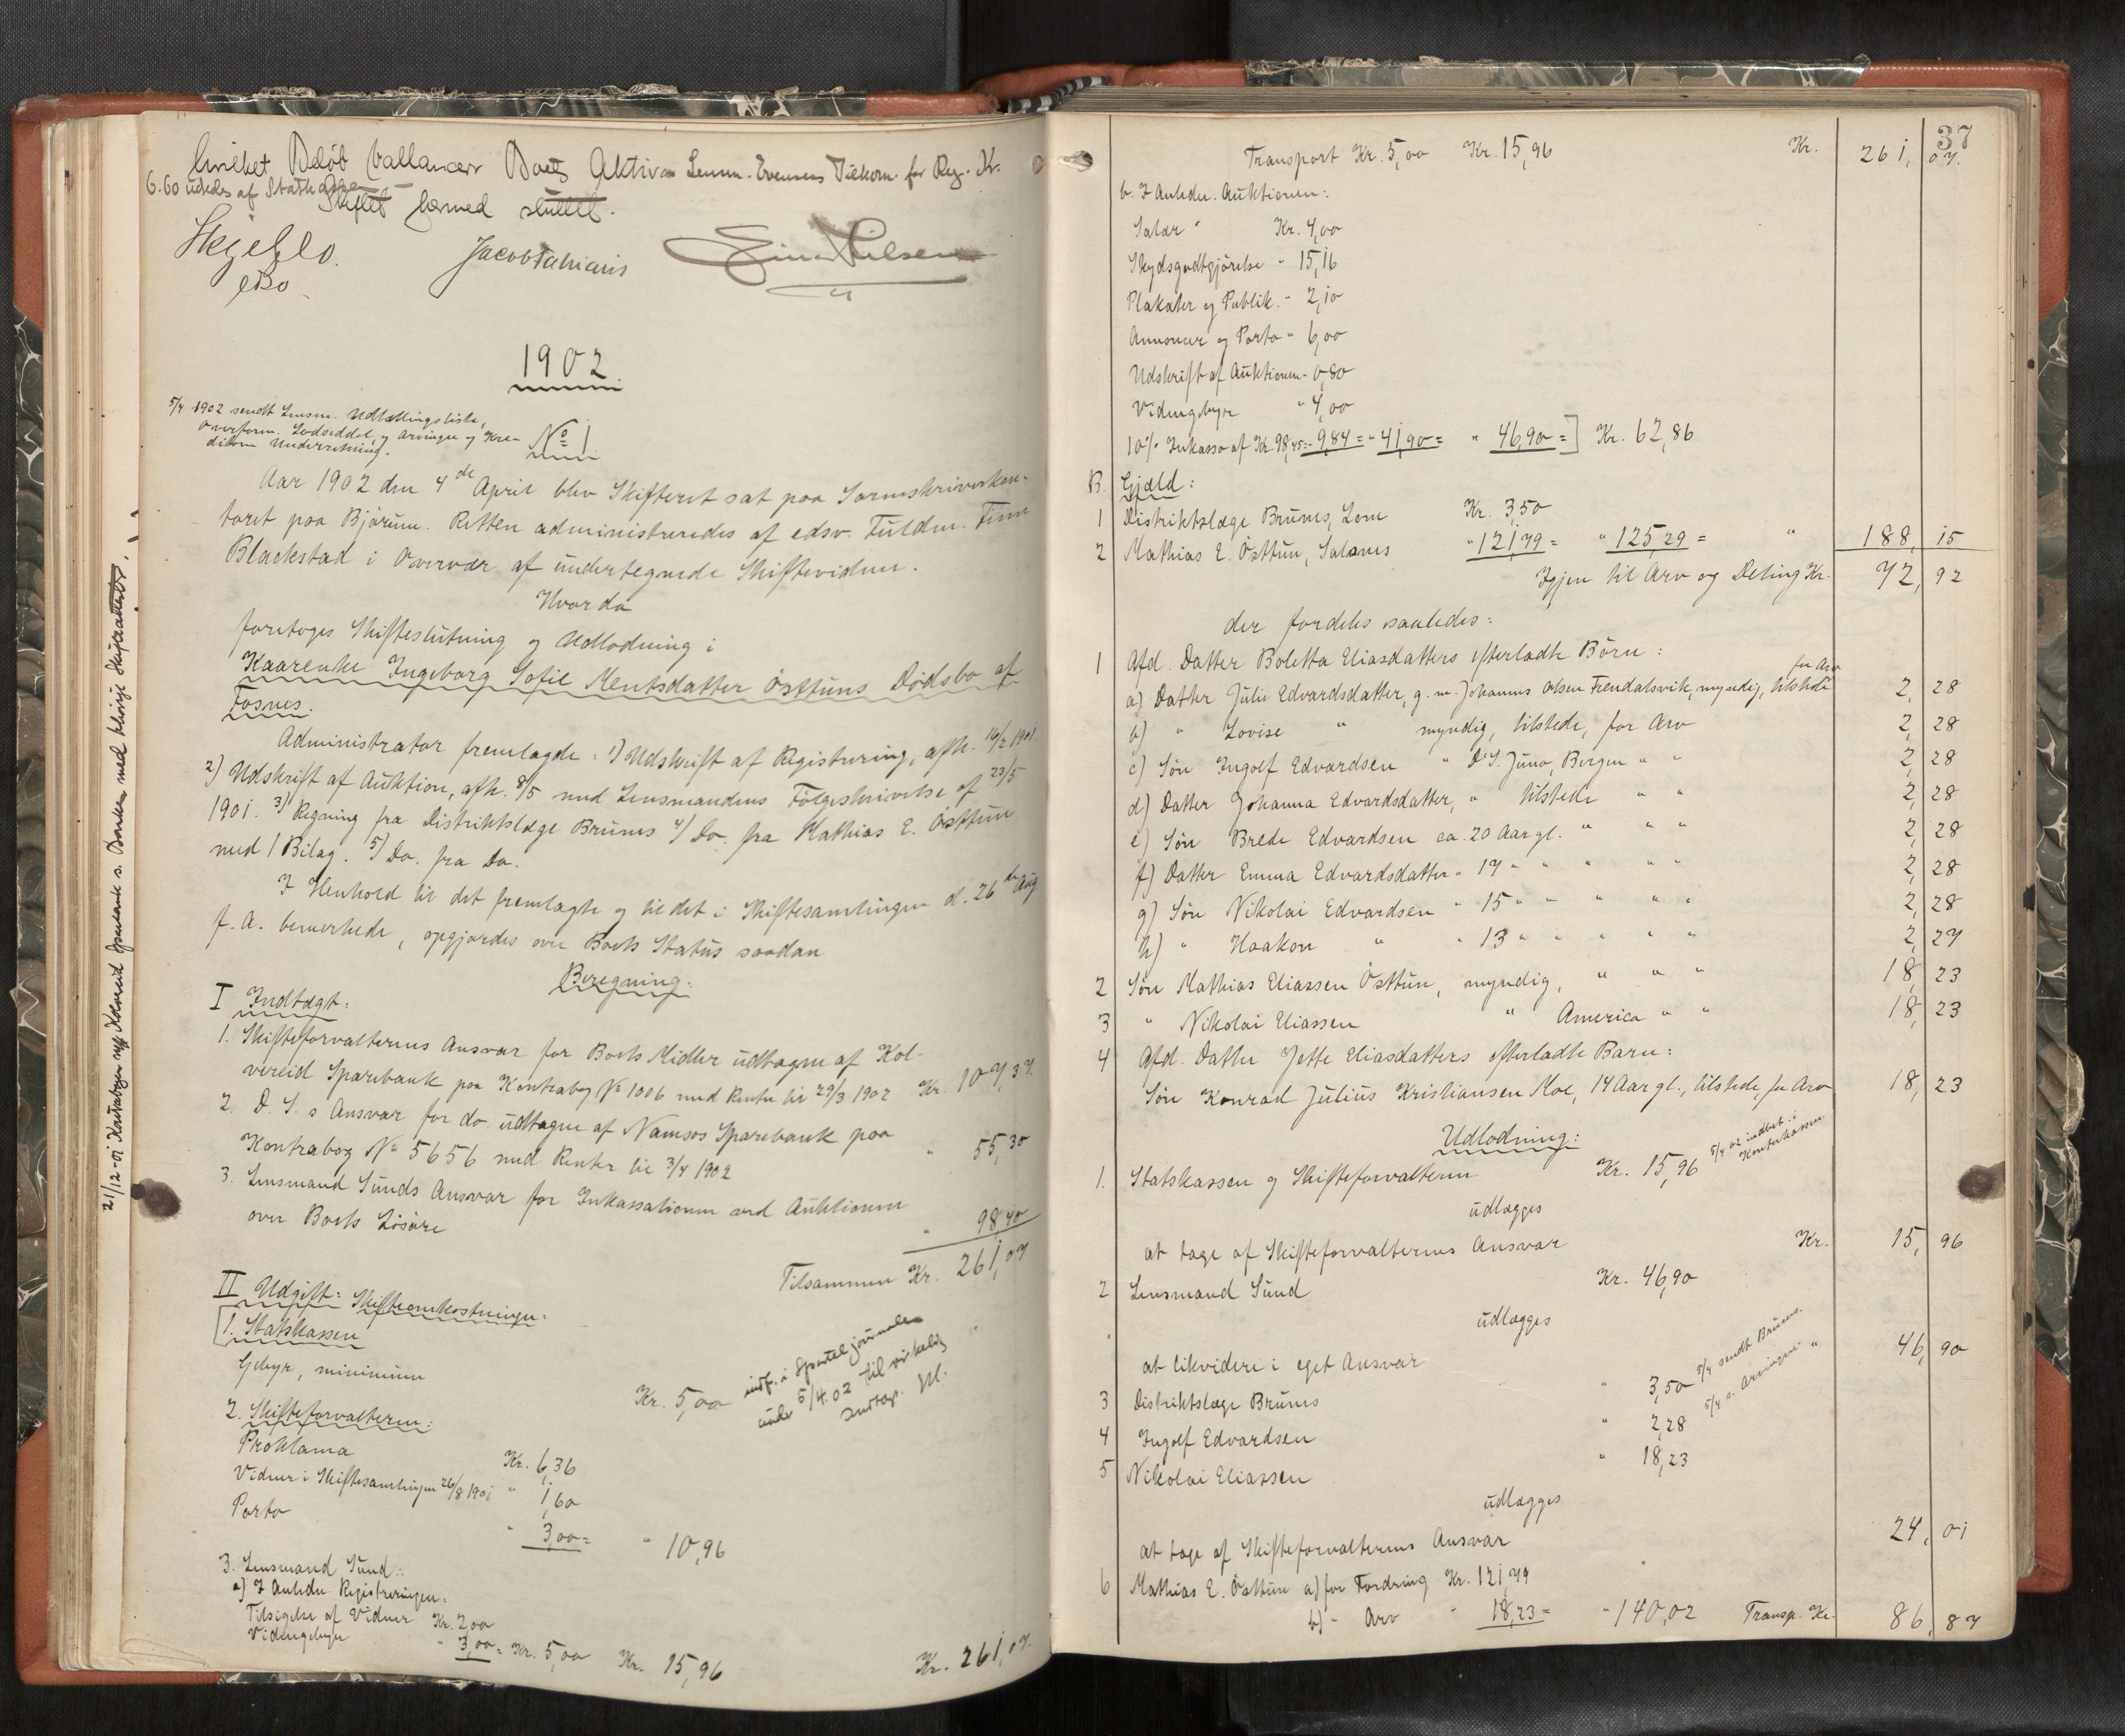 hvilket Beløb ballancerer Boets Aktiva Lensm. Evensens Tilkom. for Reg. Kr.
6.60 udredes af Statskassen
Skiftet hermed sluttet.
Jacob Fabianis Einar Nilsen
1902
5/4 1902 sendt Lensm. Udlællingsliste,
Overform. Lodseddel og Arvinger og Kre-
ditorer Underretning.
No 1
Aar 1902 den 4de April blev Skifteret sat paa Sorenskriverkon-
toret paa Bjørum. Retten administreredes af edsv. Fuldm. Finn
Blackstad i Overvær af undertegnede Skiftevidner.
Hvorda
foretoges Skifteslutning og Udlodning i
Kaarenke Ingeborg Sofie Mentsdatter Østtuns Dødsbo af
Fosnes.
Administrator fremlagde: 1) Udskrift af Registrering, afh. 16/2 1901
2) Udskrift af Auktion, afh. 8/5 med Lensmandens Følgeskrivelse af 23/5
1901. 3) Regning fra Distriktslæge Bruns 4) Do. fra Mathias E. Østtun
med 1 Bilag. 5) Do. fra Do.
I Henhold til det fremlagte og til det i Skiftesamlingen d. 26de Aug
f. A. bemerkede, opgjordes over Boets Status saadan
Beregning:
I Indtægt:
1. Skifteforvalterens Ansvar for Boets Midler udtagne af Kol-
vereid Sparebank paa Kontrabog No 1006 med Renter til 29/3 1902 Kr. 107,37
2. D. S. s Ansvar for do. udtagne af Namsos Sparebank paa
Kontrabog No 5656 med Renter til 3/4 1902 " 55,30
3. Lensmand Sunds Ansvar for Inkassationen ved Auktionen
over Boets Løsøre " 98,40
Tilsammen Kr. 261,07
II Udgift: Skifteomkostninger:
1. Statskassen
Gebyr, minimum Kr. 5,00
indf. i Sporteljournalen
under 5/4.02 til virkelig
Indtægt.
2. Skifteforvalteren:
Proklama Kr. 6,36
Vidner i Skiftesamlingen 26/8 1901 " 1,60
Porto " 3,00 = " 10,96
3. Lensmand Sund:
a) I Anledn Registreringen:
Tilsigelse af Vidner Kr. 2,00
Vidnegebyr " 3,00 = Kr. 5,00 Kr. 15,96 Kr. 261,07
37
Transport Kr. 5,00 Kr. 15,96 Kr. 261,07
b. I Anledn. Auktionen:
Salær " Kr. 4,00
Skydsgodtgjørelse " 15,16
Plakater og Publik. " 2,10
Annoncer og Porto " 6,00
Udskrift af Auktionen " 0,80
Vidnegebyr " 4,00
10% Inkasso af Kr. 98,45 = 9,84 = " 41,90 = " 46,90 = ] Kr. 62,86
B. Gjæld:
1 Distriktslæge Bruns, Lom Kr. 3,50
2 Mathias E. Østtun, Salsnes " 121,79 = " 125,29 = " 188,15
Igjen til Arv og Deling Kr. 72,92
der fordeles saaledes:
1 Afd. Datter Boletta Eliasdatters efterladte Børn:
a) Datter Julie Edvardsdatter, g. m. Johannes Olsen Frendalsvik, myndig, tilstede for Arv 2,28
b) " Lovise " myndig, tilstede, for Arv 2,28
c) Søn Ingolf Edvardsen " D. S. Juno, Bergen " " 2,28
d) Datter Johanna Edvardsdatter, " tilstede " " 2,28
e) Søn Brede Edvardsen ca. 20 Aar gl. " " " 2,28
f) Datter Emma Edvardsdatter " 17 " " " " " 2,28
g) Søn Nikolai Edvardsen " 15 " " " " " 2,28
h) " Haakon " " 13 " " " " " 2,27
2 Søn Mathias Eliassen Østtun, myndig, " " " 18,23
3 " Nikolai Eliassen " America " " 18,23
4 Afd. Datter Jette Eliasdatters efterladte Barn:
Søn Konrad Julius Kristiansen Moe, 14 Aar gl., tilstede, for Arv 18,23
Udlodning:
1. Statskassen og Skifteforvalteren Kr. 15,96 5/4 02 indbet. i
Kontorkassen
udlægges
at tage af Skifteforvalterens Ansvar Kr. 15,96
2 Lensmand Sund Kr. 46,90
udlægges
at likvidere i eget Ansvar 46,90
3 Distriktslæge Bruns " 3,50 5/4 sendt Bruns.
4 Ingolf Edvardsen " 2,28 5/4 s. Arvingen "
5 Nikolai Eliassen " 18,23
udlægges
at tage af Skifteforvalterens Ansvar 24,01
6 Mathias E. Østtun a) for Fordring Kr. 121,79
b) " Arv " 18,23 = " 140,02 Transp. Kr. 86,87